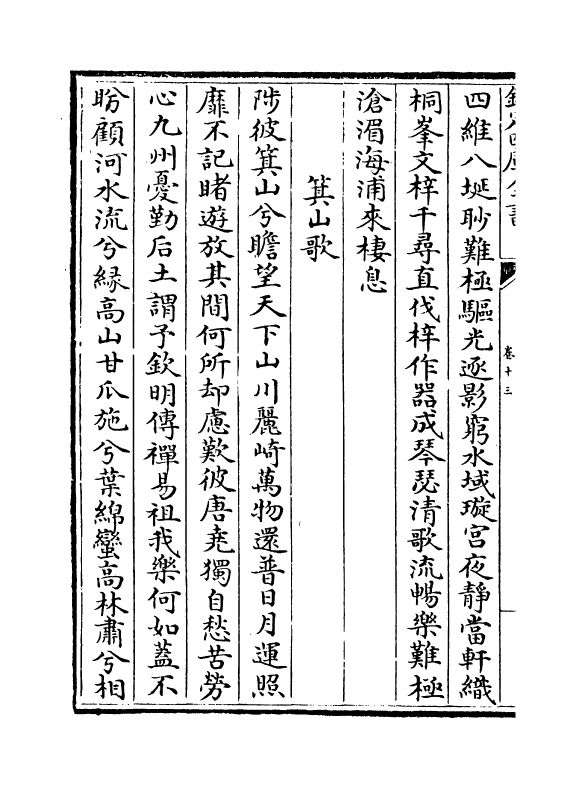 欽定四庫全書
卷十三
四維八埏眇難極驅光逐影窮水域璇宫夜靜當軒織
桐峯文梓千尋直伐梓作器成琴瑟清歌流暢樂難極
滄湄海浦來棲息
箕山歌
陟彼箕山兮瞻望天下山川麗崎萬物還普日月運照
靡不記睹遊放其間何所却慮歎彼唐堯獨自愁苦勞
心九州憂勤后土謂予欽明傳禪易祖我樂何如蓋不
盻顧河水流兮緣高山甘瓜施兮葉綿蠻高林肅兮相